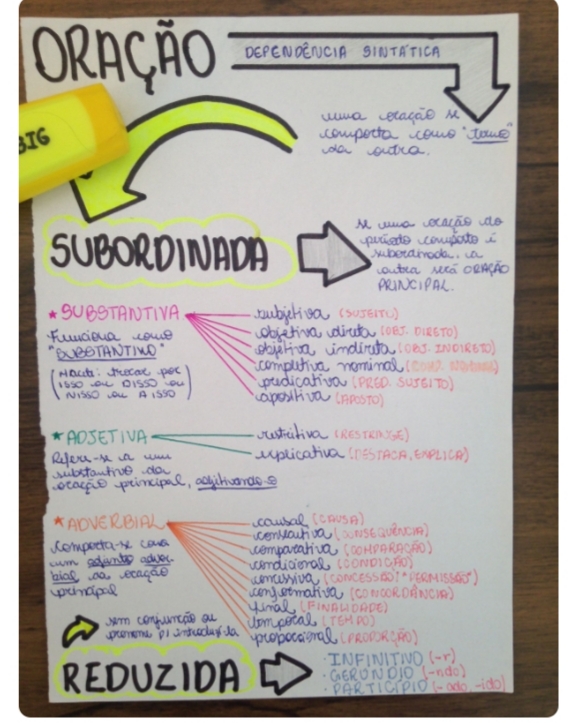 ORAÇÃO
DEPENDÊNCIA SINTÁTICA
BIG
uma oração se
comporta como "termo"
da outra.
SUBORDINADA
se uma oração do
período composto é
subordinada, a
outra será ORAÇÃO
PRINCIPAL.
★ SUBSTANTIVA
Funciona como
"SUBSTANTIVO"
(Maceti: trocar por
ISSO ou DISSO ou
NISSO ou A ISSO)
subjetiva (SUJEITO)
objetiva direta (OBJ. DIRETO)
objetiva indireta (OBJ. INDIRETO)
completiva nominal (COMP. NOMINAL)
predicativa (PRED. SUJEITO)
apositiva (APOSTO)
★ ADJETIVA
Refere-se a um
substantivo da
oração principal, adjetivando-o
restritiva (RESTRINGE)
explicativa (DESTACA, EXPLICA)
★ ADVERBIAL
Comporta-se como
um adjunto adver-
bial da oração
principal
causal (CAUSA)
consecutiva (CONSEQUÊNCIA)
comparativa (COMPARAÇÃO)
condicional (CONDIÇÃO)
concessiva (CONCESSÃO/"PERMISSÃO")
conformativa (CONCORDÂNCIA)
final (FINALIDADE)
temporal (TEMPO)
proporcional (PROPORÇÃO)
sem conjunção ou
pronome p/ introduzi-la
REDUZIDA
· INFINITIVO (-r)
· GERÚNDIO (-ndo)
· PARTICÍPIO (-ado, -ido)